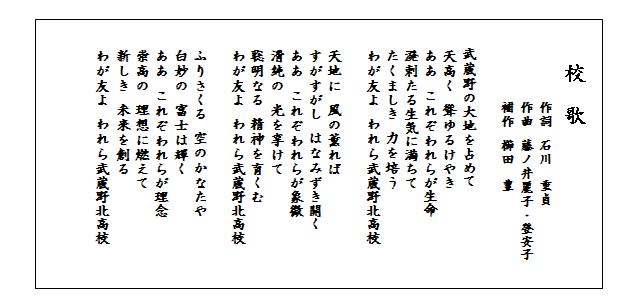 校歌
作詞 石川 重貞
作曲 藤ノ井麗子・登安子
補作 櫛田 豊
武蔵野の大地を占めて
天高く 聳ゆるけやき
ああ これぞわれらが生命
溌剌たる生気に満ちて
たくましき 力を培う
わが友よ われら武蔵野北高校
天地に 風の薫れば
すがすがし はなみずき開く
ああ これぞわれらが象徴
清純の 光を掌けて
聡明なる 精神を育くむ
わが友よ われら武蔵野北高校
ふりさくる 空のかなたや
白妙の 富士は輝く
ああ これぞわれらが理念
崇高の 理想に燃えて
新しき 未来を創る
わが友よ われら武蔵野北高校